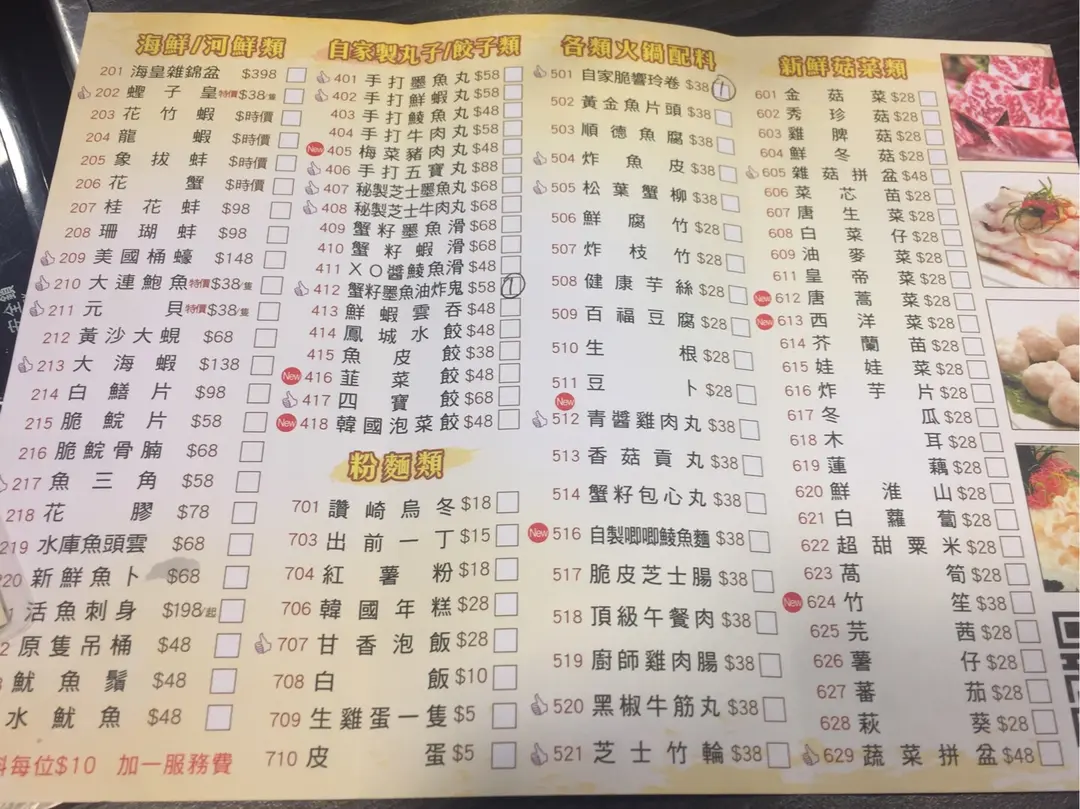 海鮮/河鮮類
201 海皇雜錦盆 $398
202 蟶子皇 特價$38/隻
203 花竹蝦 $時價
204 龍蝦 $時價
205 象拔蚌 $時價
206 花蟹 $時價
207 桂花蚌 $98
208 珊瑚蚌 $98
209 美國桶蠔 $148
210 大連鮑魚 特價$38/隻
211 元貝 特價$38/隻
212 黃沙大蜆 $68
213 大海蝦 $138
214 白鱔片 $98
215 脆鯇片 $58
216 脆鯇骨腩 $68
217 魚三角 $58
218 花膠 $78
219 水庫魚頭雲 $68
220 新鮮魚卜 $68
活魚刺身 $198/起
2 原隻吊桶 $48
魷魚鬚 $48
水魷魚 $48
料每位$10 加一服務費
自家製丸子/餃子類
401 手打墨魚丸 $58
402 手打鮮蝦丸 $58
403 手打鯪魚丸 $48
404 手打牛肉丸 $58
New 405 梅菜豬肉丸 $48
406 手打五寶丸 $88
407 秘製芝士墨魚丸 $68
408 秘製芝士牛肉丸 $68
409 蟹籽墨魚滑 $68
410 蟹籽蝦滑 $68
411 XO醬鯪魚滑 $48
412 蟹籽墨魚油炸鬼 $58 1
413 鮮蝦雲吞 $48
414 鳳城水餃 $48
415 魚皮餃 $38
New 416 韮菜餃 $48
417 四寶餃 $68
New 418 韓國泡菜餃 $48
粉麵類
701 讚崎烏冬 $18
703 出前一丁 $15
704 紅薯粉 $18
706 韓國年糕 $28
707 甘香泡飯 $28
708 白飯 $10
709 生雞蛋一隻 $5
710 皮蛋 $5
各類火鍋配料
501 自家脆響玲卷 $38 1
502 黃金魚片頭 $38
503 順德魚腐 $38
504 炸魚皮 $38
505 松葉蟹柳 $38
506 鮮腐竹 $28
507 炸枝竹 $28
508 健康芋絲 $28
509 百福豆腐 $28
510 生根 $28
511 豆卜 $28
New 512 青醬雞肉丸 $38
513 香菇貢丸 $38
514 蟹籽包心丸 $38
New 516 自製唧唧鯪魚麵 $38
517 脆皮芝士腸 $38
518 頂級午餐肉 $38
519 廚師雞肉腸 $38
520 黑椒牛筋丸 $38
521 芝士竹輪 $38
新鮮菇菜類
601 金菇菜 $28
602 秀珍菇 $28
603 雞脾菇 $28
604 鮮冬菇 $28
605 雜菇拼盆 $48
606 菜芯苗 $28
607 唐生菜 $28
608 白菜仔 $28
609 油麥菜 $28
611 皇帝菜 $28
New 612 唐蒿菜 $28
New 613 西洋菜 $28
614 芥蘭苗 $28
615 娃娃菜 $28
616 炸芋片 $28
617 冬瓜 $28
618 木耳 $28
619 蓮藕 $28
620 鮮淮山 $28
621 白蘿蔔 $28
622 超甜粟米 $28
623 萵筍 $28
New 624 竹笙 $38
625 芫茜 $28
626 薯仔 $28
627 蕃茄 $28
628 萩葵 $28
629 蔬菜拼盆 $48